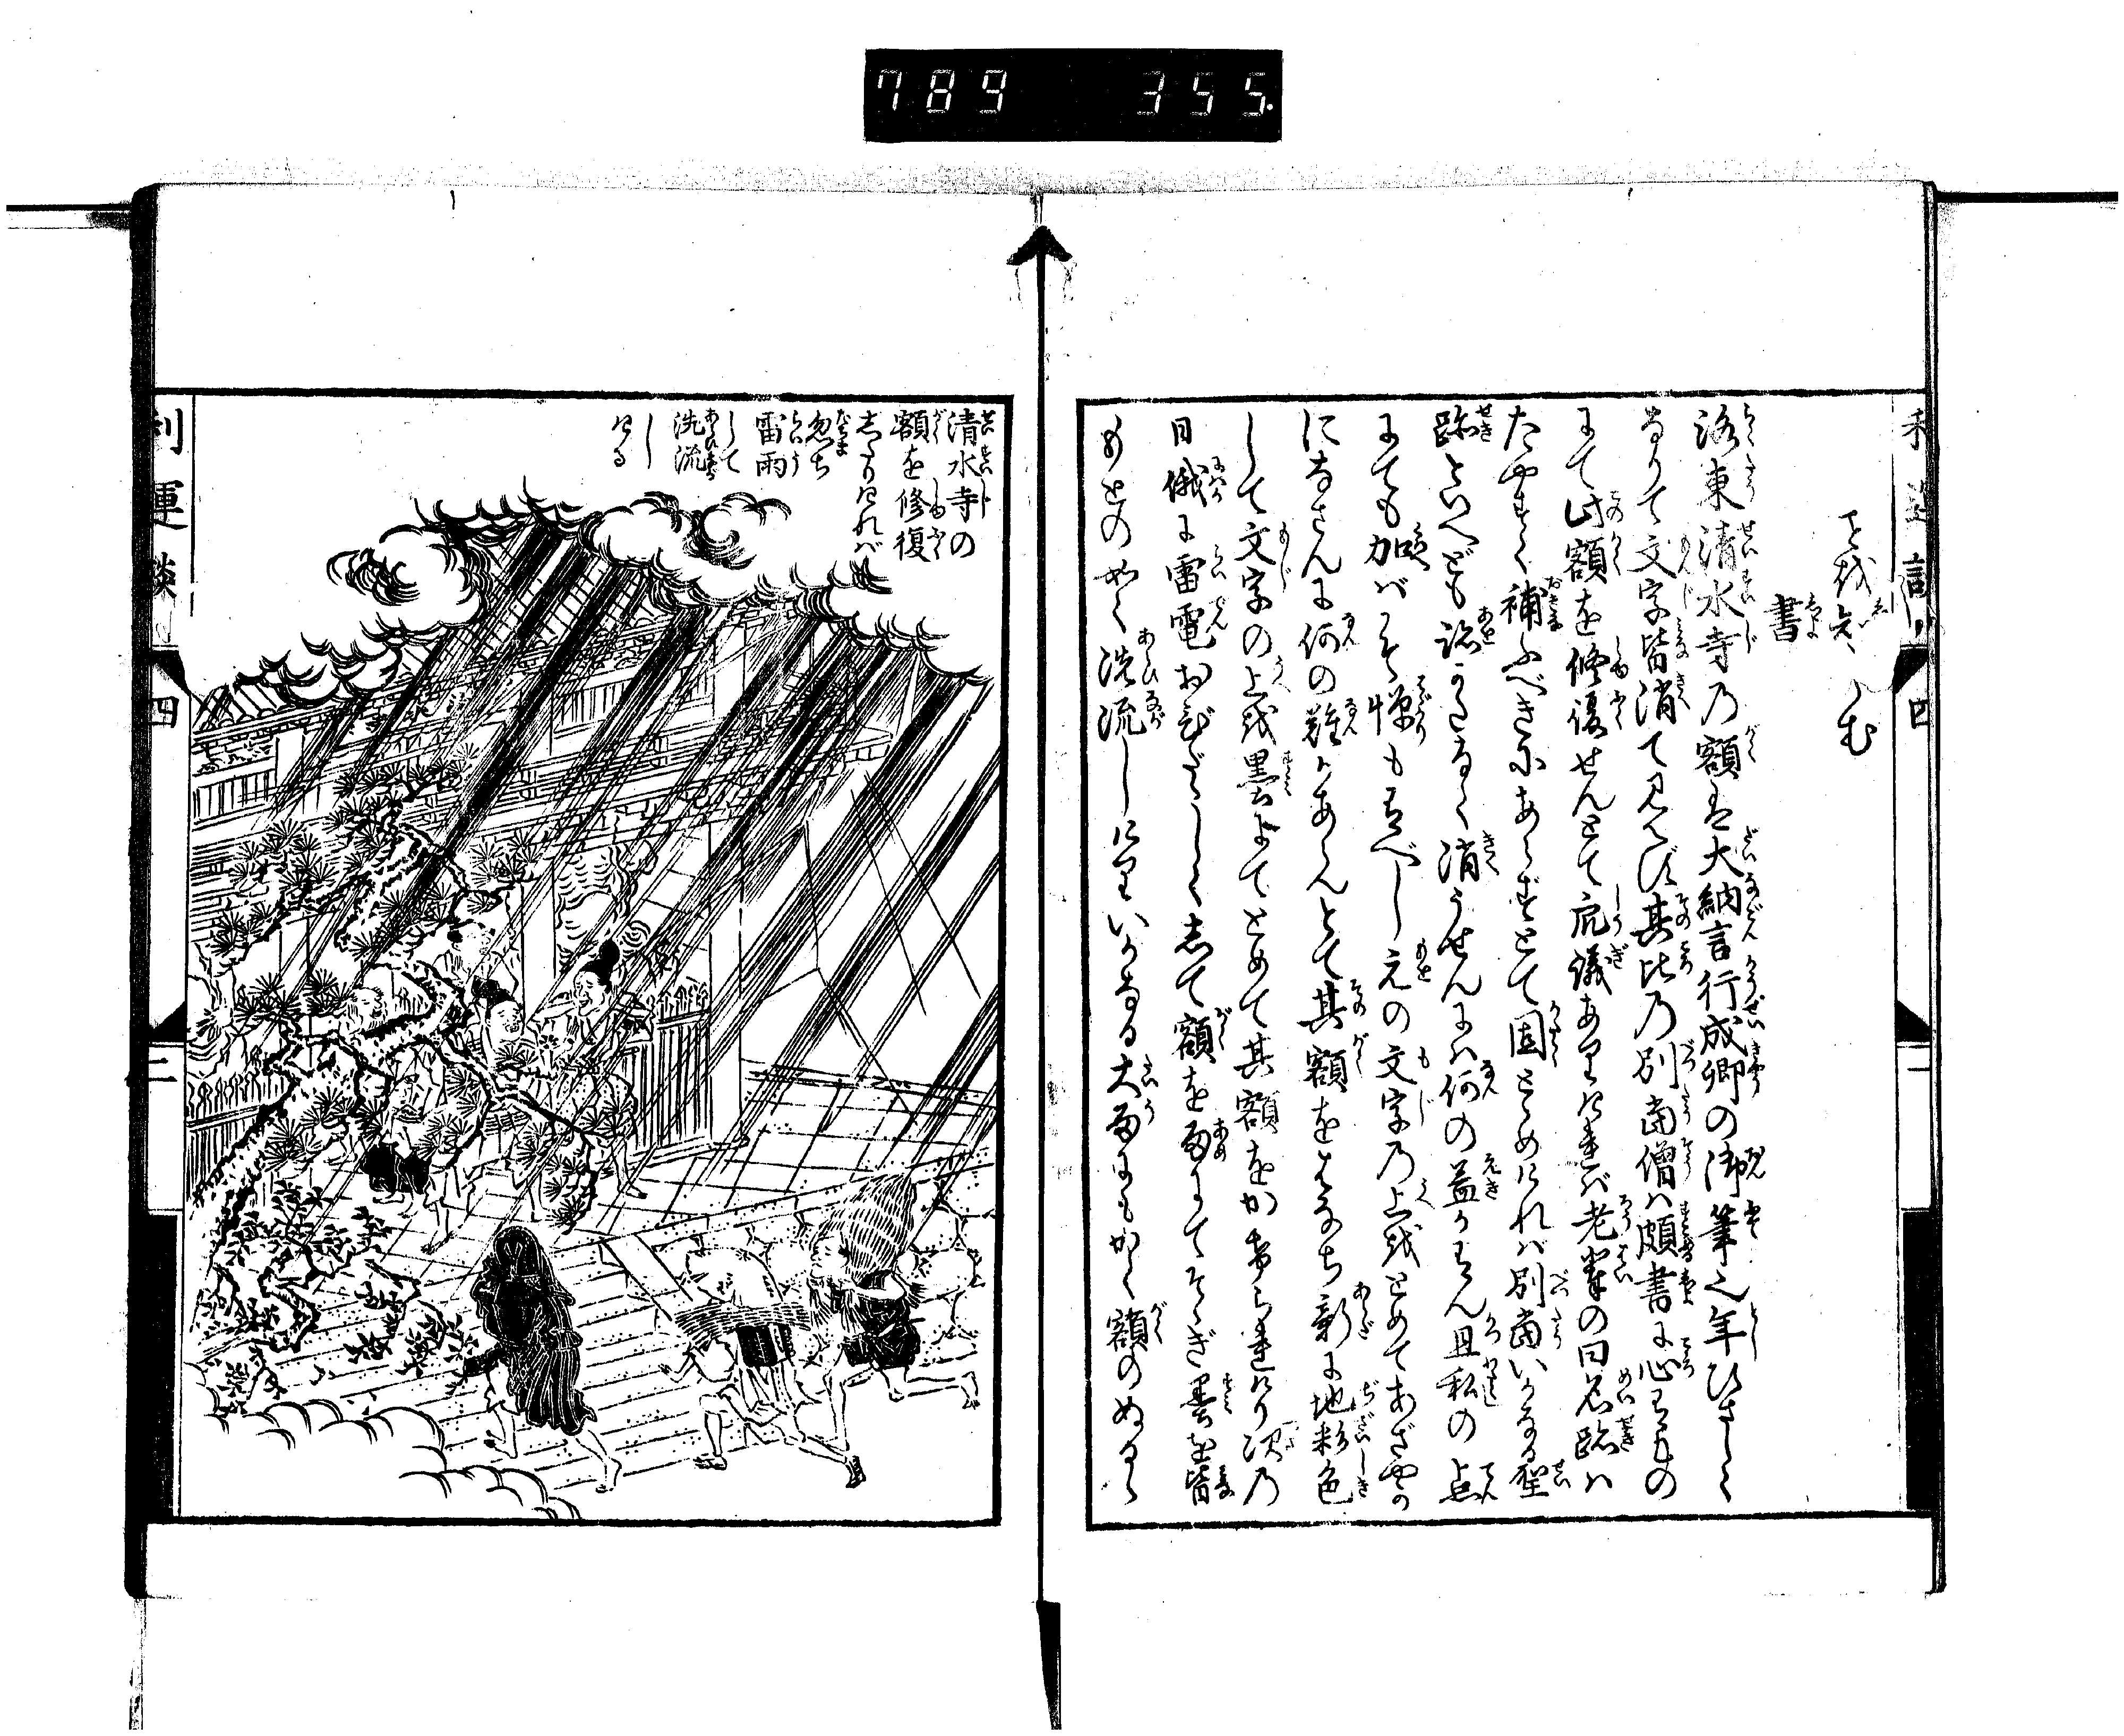 789 355
書
洛東清水寺乃額は大納言行成卿の御筆也年ひさしく
なりて文字皆消て見へず其比乃別当僧は頗書に心えもの
にて此額を修復せんとて庇議ありければ老輩の曰名跡は
たやすく補ふべきにあらずとて固とめければ別当いかなる聖
跡といへども跡かたなく消うせんには何の益かあらん且私の点
にても加ばこそ憚も有べし元の文字乃上をとめてあざやか
になさんに何の難かあらんとて其額をはなち新に地彩色
して文字の上を墨にてとめて其額をかけられけり次乃
日俄に雷電おびたゝしくして額を雨にてそゝぎ墨を皆
もとの如く洗流しにけりいかなる大雨にもかく額のぬるゝ
清水寺の
額を修復
しけれバ
忽ち
雷雨
して
洗流
し
ける
利運談
四
二